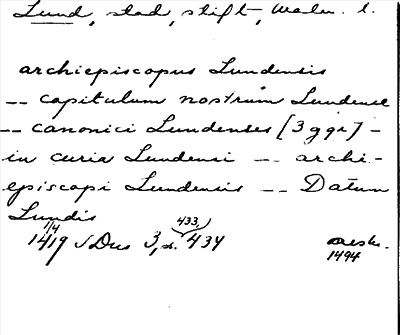 Lund, stad, stift, Malm. l.
archiepiscopus Lundensis
-- capitulum nostrum Lundence
-- canonici Lundenses [3 ggr] -
in curia Lundensi -- archi-
episcopi Lundensis -- Datum
Lundis
1/4 433,
1419 SDns 3, s. 434
1494